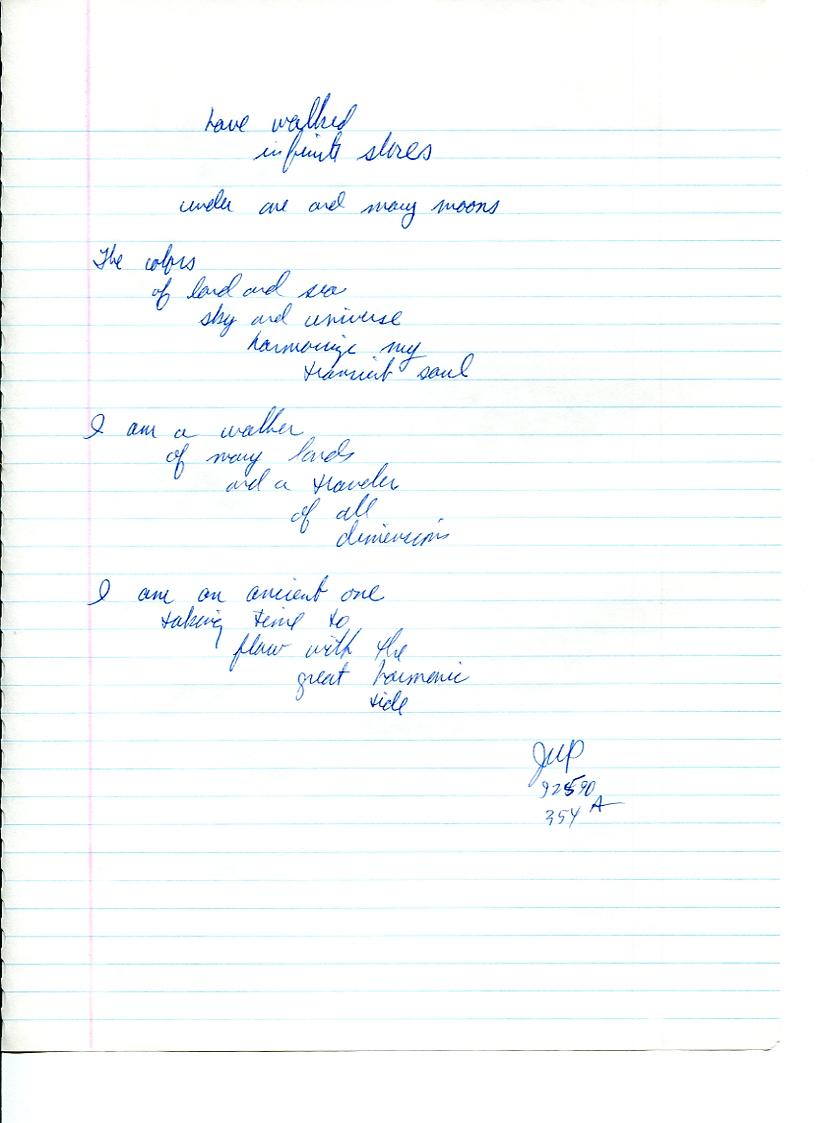 have walked
infinite shores
under one and many moons
The colors
of land and sea
sky and universe
harmonize my
transient soul
I am a walker
of many lands
and a traveler
of all
dimensions
I am an ancient one
taking time to
flow with the
great harmonic
tide
JWP
92590
354 A